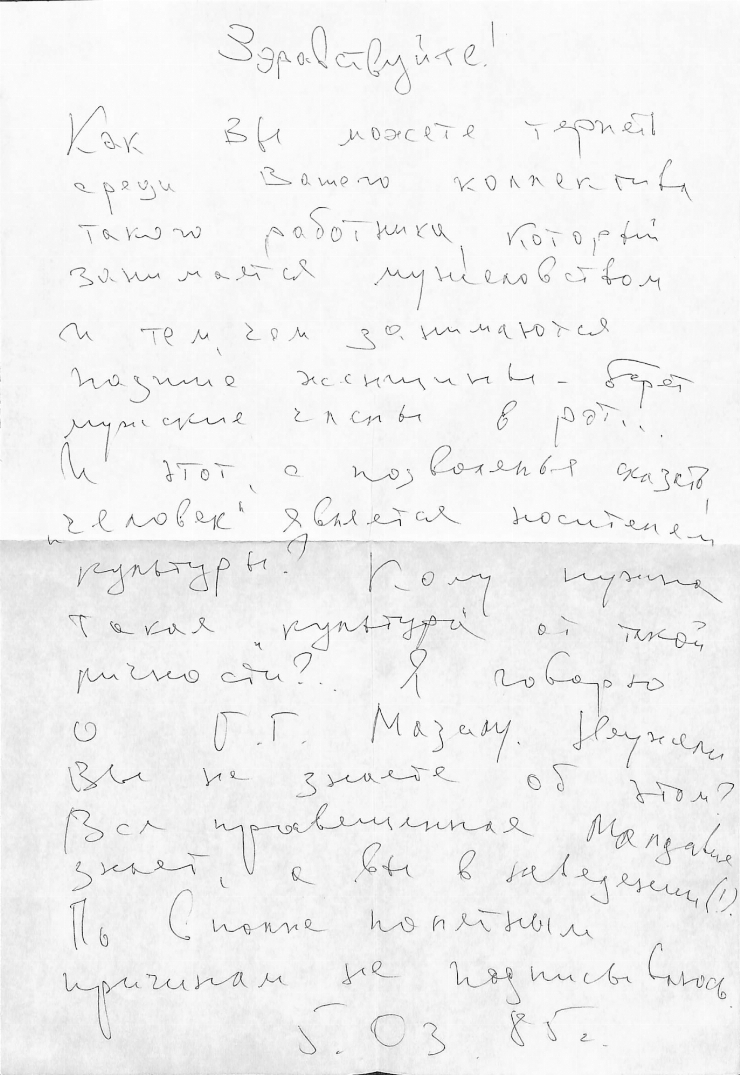 Здравствуйте!
Как Вы можете терпеть
среди Вашего коллектива
такого работника, который
занимается мужеловством
и тем, чем занимаются
падшие женщины - берет
мужские члены в рот...
И этот, с позволенья сказать,
"человек" является носителем
культуры? Кому нужна
такая "культура" от такой
личности?.. Я говорю
о Г. Мазилу. Неужели
Вы не знаете об этом?
Вся просвещенная Молдавия
знает, а вы в неведении(!).
По вполне понятным
причинам не подписываюсь.
5.03.85г.